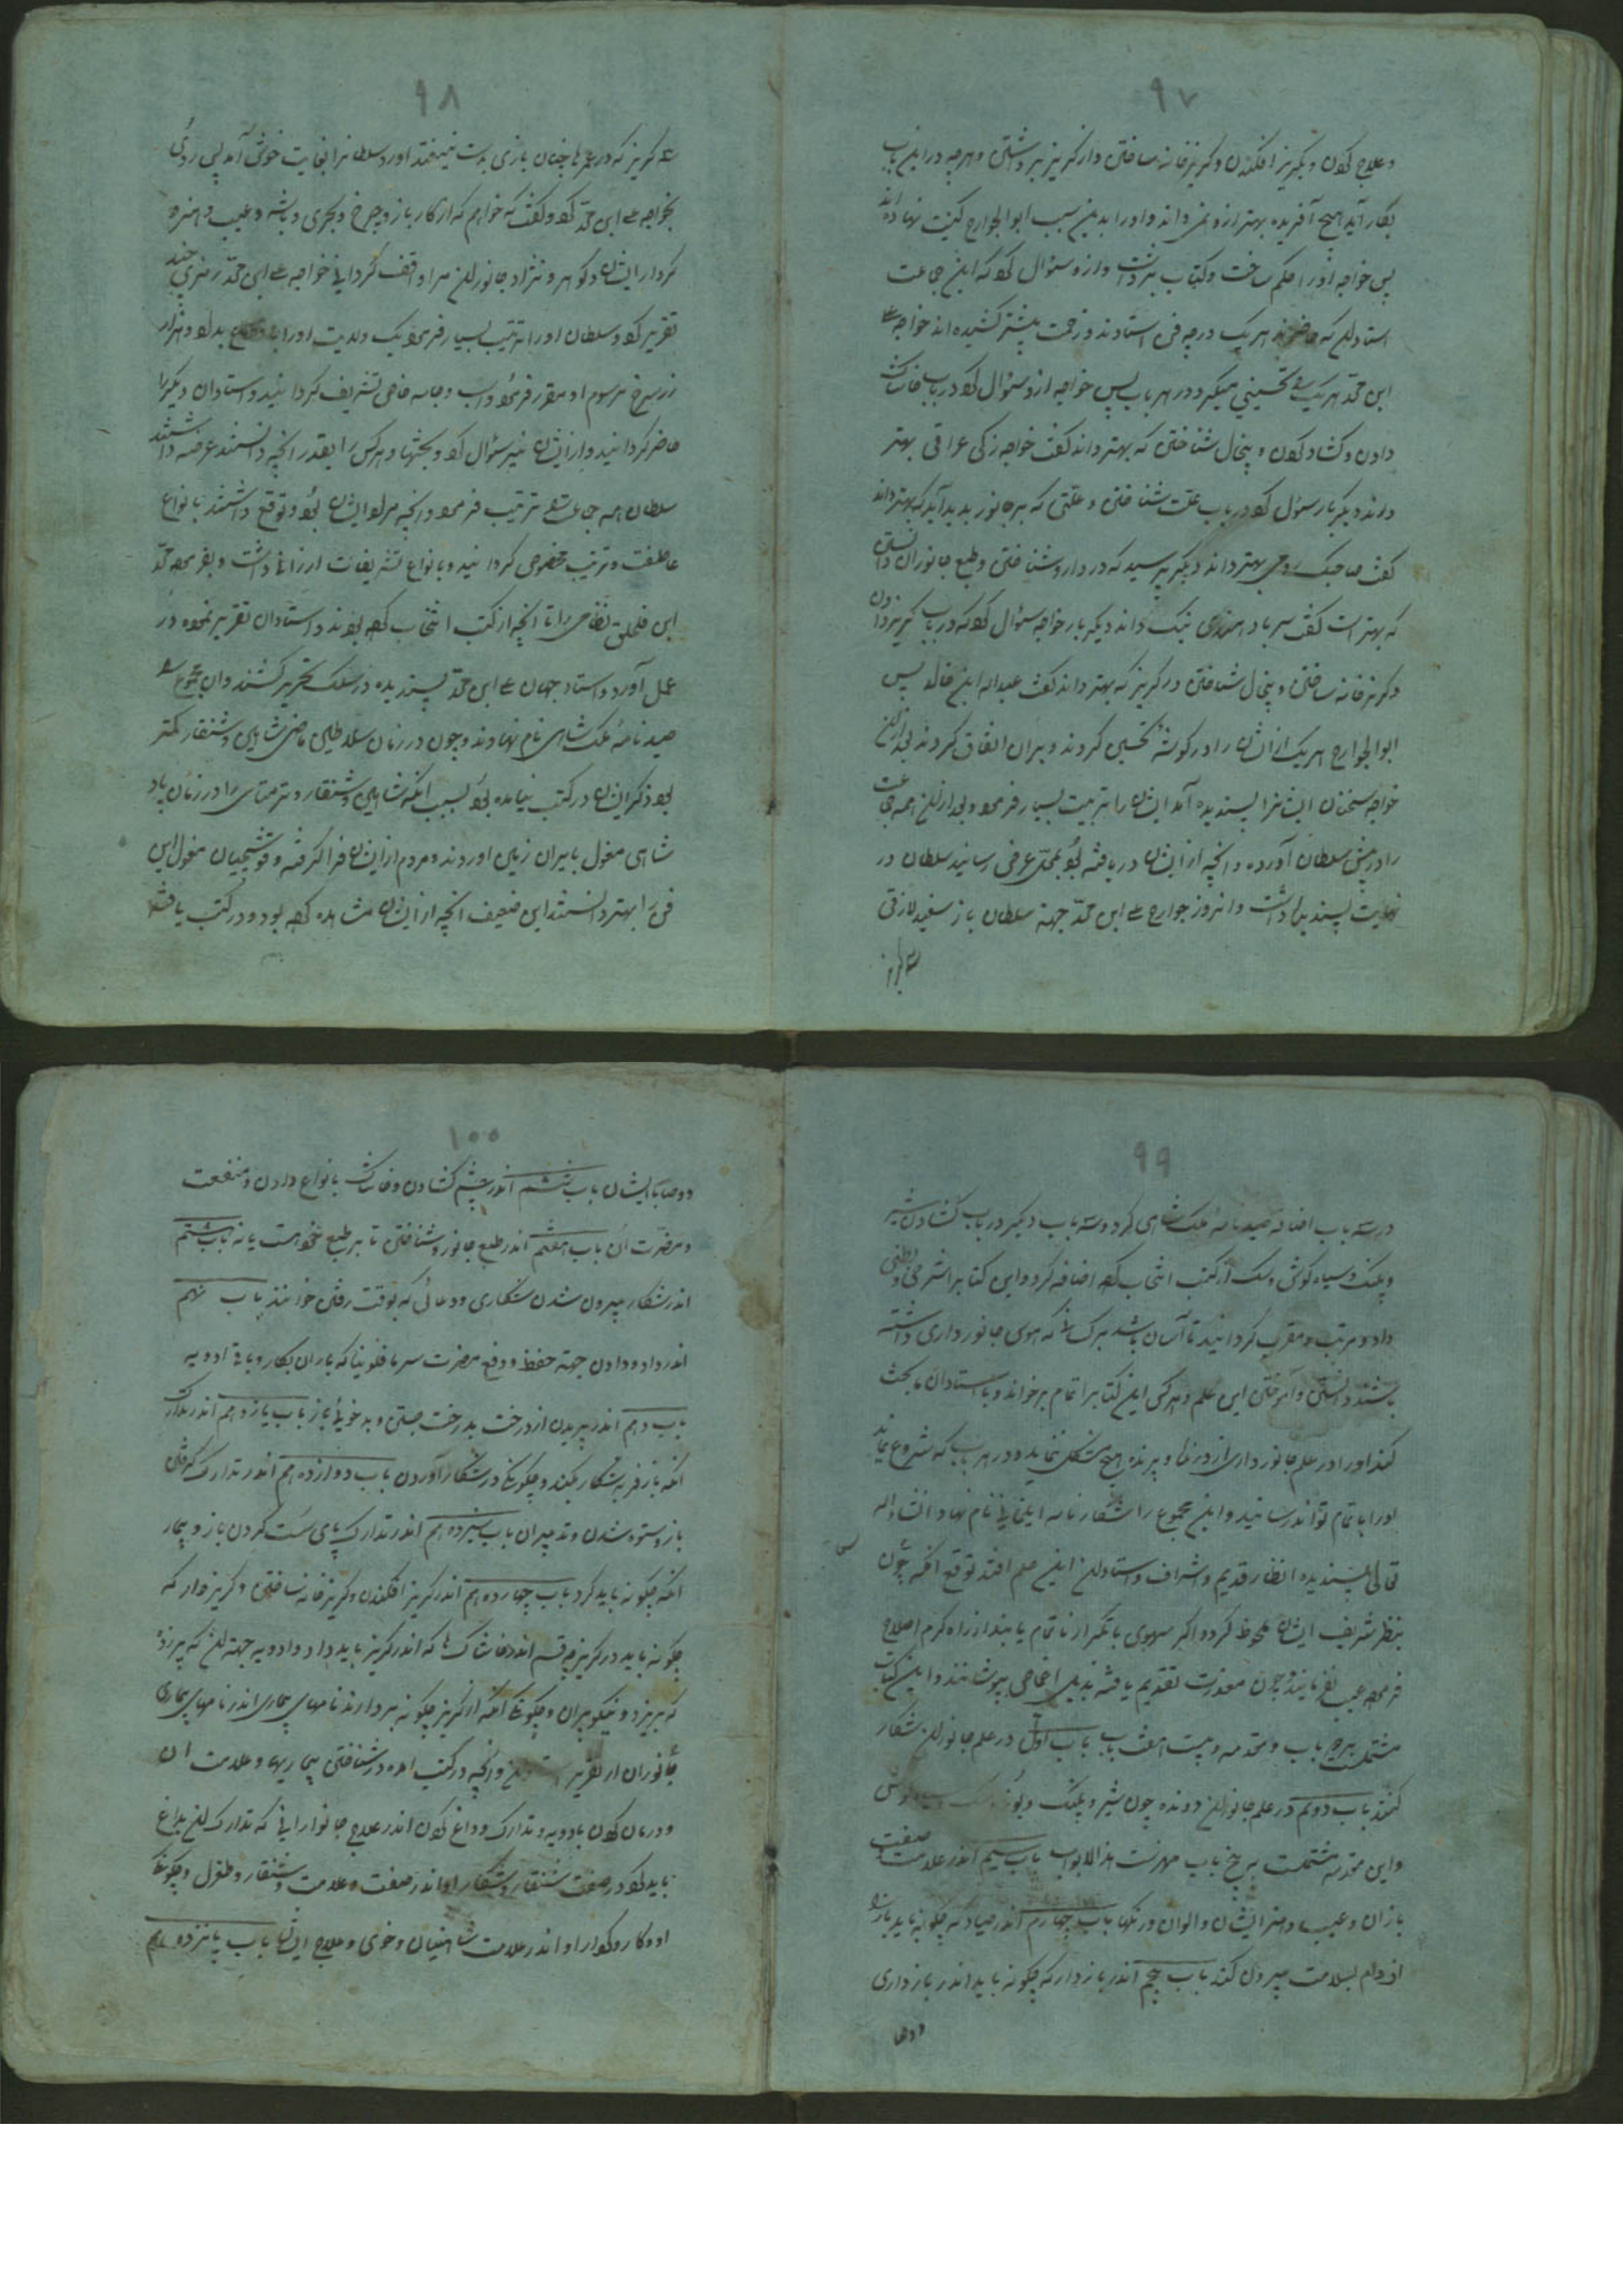 ٩٧
وعلاج کردن و بکریز افکندن و کریزخانه ساختن و از کریز برداشتن و هرچه در این باب
بکار آید هیچ آفریده بهتر ازو نمی داند و او را بدین سبب ابوالجوارح کنیت نهاده اند
پس خواجه او را حکم ساخت و کتاب برداشت و ازو سؤال کرد که این جماعت
استادان که حاضرند هریک درچه فن استادند و زحمت بیشتر کشیده اند خواجه علی
ابن محمد هریک را تحسینی میکرد در هر باب پس خواجه ازو سؤال کرد در باب خاشاک
دادن و کشاد کردن و پیخال شناختن که بهتر داند گفت خواجه زکی عراقی بهتر
داند دیگر بار سؤال کرد در باب علت شناختن و علتی که بر جانور پدید آید که بهتر داند
گفت صاحبک رومی بهتر داند دیگر پرسید که در دارو شناختن و طبع جانوران دانستن
که بهتر است گفت سرباد هندی نیک داند دیگر بار خواجه سؤال کرد که در باب کریز دادن
و کریزخانه ساختن و پیخال شناختن در کریز که بهتر داند گفت عبداله ابن خالد پس
ابوالجوارح هریک از ایشان را در گوشه تحسین کردند و بران اتفاق کردند بعد ازان
خواجه سخنان ایشانرا پسندیده آمد ایشان را تربیت بسیار فرمود و بعد ازان همه جماعت
را در پیش سلطان آورده و انچه از ایشان دریافته بود بمحل عرض رسانید سلطان در
نهایت پسندیده داشت و انروز جوارح علی ابن محمد جهة سلطان باز سفید لازقی
٩٨
که در عمرها چنان بازی بدست نیفتد اورد سلطانرا بغایت خوش آمد پس روی
بخواجه علی ابن محمد کرد و گفت که خواهم که از کار باز و چرخ و بحری و باشه و عیب و هنر و
کردار ایشان و گوهر و نژاد جانوران مرا واقف گردانی خواجه علی ابن محمد رمزی چند
تقریر کرد و سلطان او را تربیت بسیار فرمود یک ولایت او را بداد و هزار
زر سرخ مرسوم او مقرر فرمود و اسب و جامه خاص تشریف گردانید و استادان دیگر را
حاضر گردانید و از ایشان نیز سؤال کرد و بحثها و هرکس را بقدر انچه دانستند عرضه داشتند
سلطان همه جماعت را تربیت فرمود و انچه مراد ایشان بود و توقع داشتند بانواع
عاطفت و تربیت مخصوص گردانید و بانواع تشریفات ارزانی داشت و بفرمود محمد
ابن نظامی را تا انچه از کتب انتخاب کرده بودند و استادان تقریر نموده در
عمل آورد و استاد جهان علی ابن محمد پسندیده در سلک تحریر کشند و ان مجموع را
صید نامه ملک شاهی نام نهادند و چون در زمان سلاطین ماضی شاهین و شنقار کمتر
بود ذکر ایشان در کتب نیامده بود بسبب آنکه شاهین و شنقار و ترمتای را در زمان پاد
شاهی مغول بایران زمین اوردند و مردم از ایشان فراگرفته و قوشچیان مغول این
فن را بهتر دانستند این ضعیف انچه از ایشان مشاهده کرده بود و در کتب یافته
٩٩
در سه باب اضافه صیدنامه ملک شاهی کرد و سه باب دیگر در باب کشادن شیر
و پلنک و سیاه گوش و سک از کتب انتخاب کرده اضافه کرد و این کتابرا شرحی و بطنی
داد و مرتب و مقرب گردانید تا آسان باشد هرکس را که هوس جانور داری داشته
باشند دانستن و آموختن این علم و هرکس این کتابرا تمام برخواند و با استادان بحث
کند او را در علم جانور داری از درنده و پرنده هیچ مشکل ننماید و در هر باب که شروع نماید
او را باتمام تواند رسانید و این مجموع را شکارنامه ایلخانی نام نهاد انشاءاله
تعالی پسندیده انظار قدیم و اشراف و استادان این علم افتد توقع انکه چون
بنظر شریف ایشان ملحوظ گردد اگر سهوی یا تکرار ناتمام یابند از راه کرم اصلاح
فرموده عیب نفرمایند و چون معذرت تقدیم یافته بذیل اغماض بپوشانند و این کتاب
مشتمل است بر باب و مقدمه و بیست هفت باب باب اول در علم جانوران شکار
کنند باب دویم در علم جانوران دونده چون شیر و پلنک و یوز و سک و سیاه گوش
و این مقدمه مشتمل است بر پنج باب فهرست هذا الابواب باب سیم اندر علامت و صفت
بازان و عیب و هنر ایشان و الوان و رنکها باب چهارم اندر صیاد که چگونه باید باز را
از دام بسلامت بیرون کند باب پنجم اندر بازدار که چگونه باید اندر باز داری
ووصا
١٠٠
ووصایا ایشان باب ششم اندر چشم کشادن و خاشاک بانواع دادن و منفعت
و مضرت ان باب هفتم اندر طبع جانور و شناختن تا بر طبع خود هست یا نه باب هشتم
اندر شکار بیرون شدن شکاری و دعائی که بوقت رفتن خوانند باب نهم
اندر دارو دادن جهة حفظ و دفع مضرت سرما قلوبنا که باران بکار و باقی ادویه
باب دهم اندر پریدن از درخت بدرخت جستن و بدخوئی باز باب یازدهم اندر تدارک
انکه باز فربه شکار نکند و چگونگی در شکار آوردن باب دوازدهم اندر تدارک گرفتن
باز و ستوه شدن و تدبیر ان باب سیزدهم اندر تدارک پای سست کردن باز و بیمار
انکه چگونه باید کرد باب چهاردهم اندر کریز افکندن و کریزخانه ساختن و کریزدار که
چگونه باید در کریز چه قسم اند و خاشاک ها که اندر کریز باید داد و ادویه جهة ان که پر زود
بریزد و نیکو بران و چگونگی انکه از کریز چگونه بردارند نامهای بیماری اندر نامهای بیماری
جانوران از تقریر و انچه در کتب امده در شناختن بیماریها و علامت ان
و درمان کردن بادویه و تدارک و داغ کردن اندر علاج جانورانی که تدارک ان بداغ
باید کرد در صفت شنقار و شکار او اندر صفت و علامت شنقار و طغرل و چگونگی
او و کار و کردار او اندر علامت شاهنیان و خوی و علاج ایشان باب پانزدهم